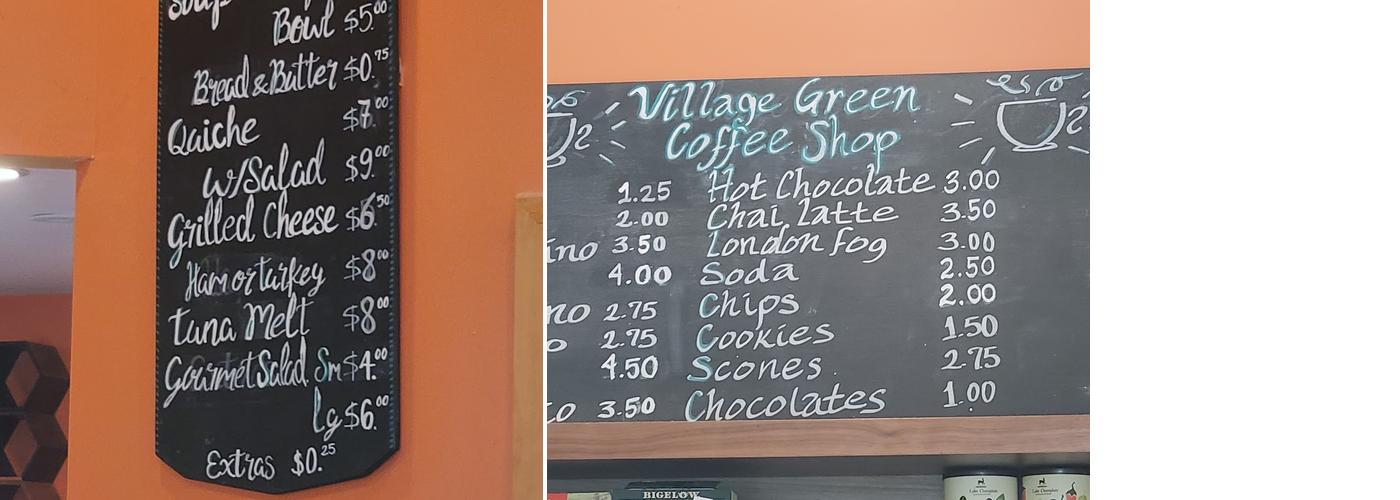 Soup
Bowl $5.00
Bread & Butter $0.75
Quiche $7.00
w/Salad $9.00
Grilled Cheese $6.50
Ham or turkey $8.00
Tuna Melt $8.00
Gourmet Salad Sm $4.00
Lg $6.00
Extras $0.25
Village Green
Coffee Shop
1.25 Hot Chocolate 3.00
2.00 Chai Latte 3.50
ino 3.50 London Fog 3.00
4.00 Soda 2.50
no 2.75 Chips 2.00
o 2.75 Cookies 1.50
4.50 Scones 2.75
to 3.50 Chocolates 1.00
BIGELOW
Lake Champlain
Lake Champlain